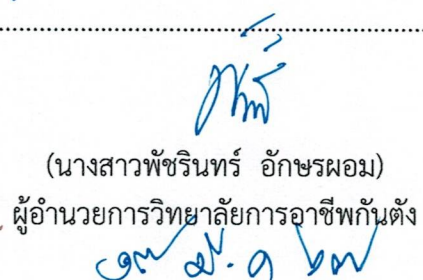 (นางสาวพัชรินทร์ อักษรผอม)
ผู้อำนวยการวิทยาลัยการอาชีพกันตัง